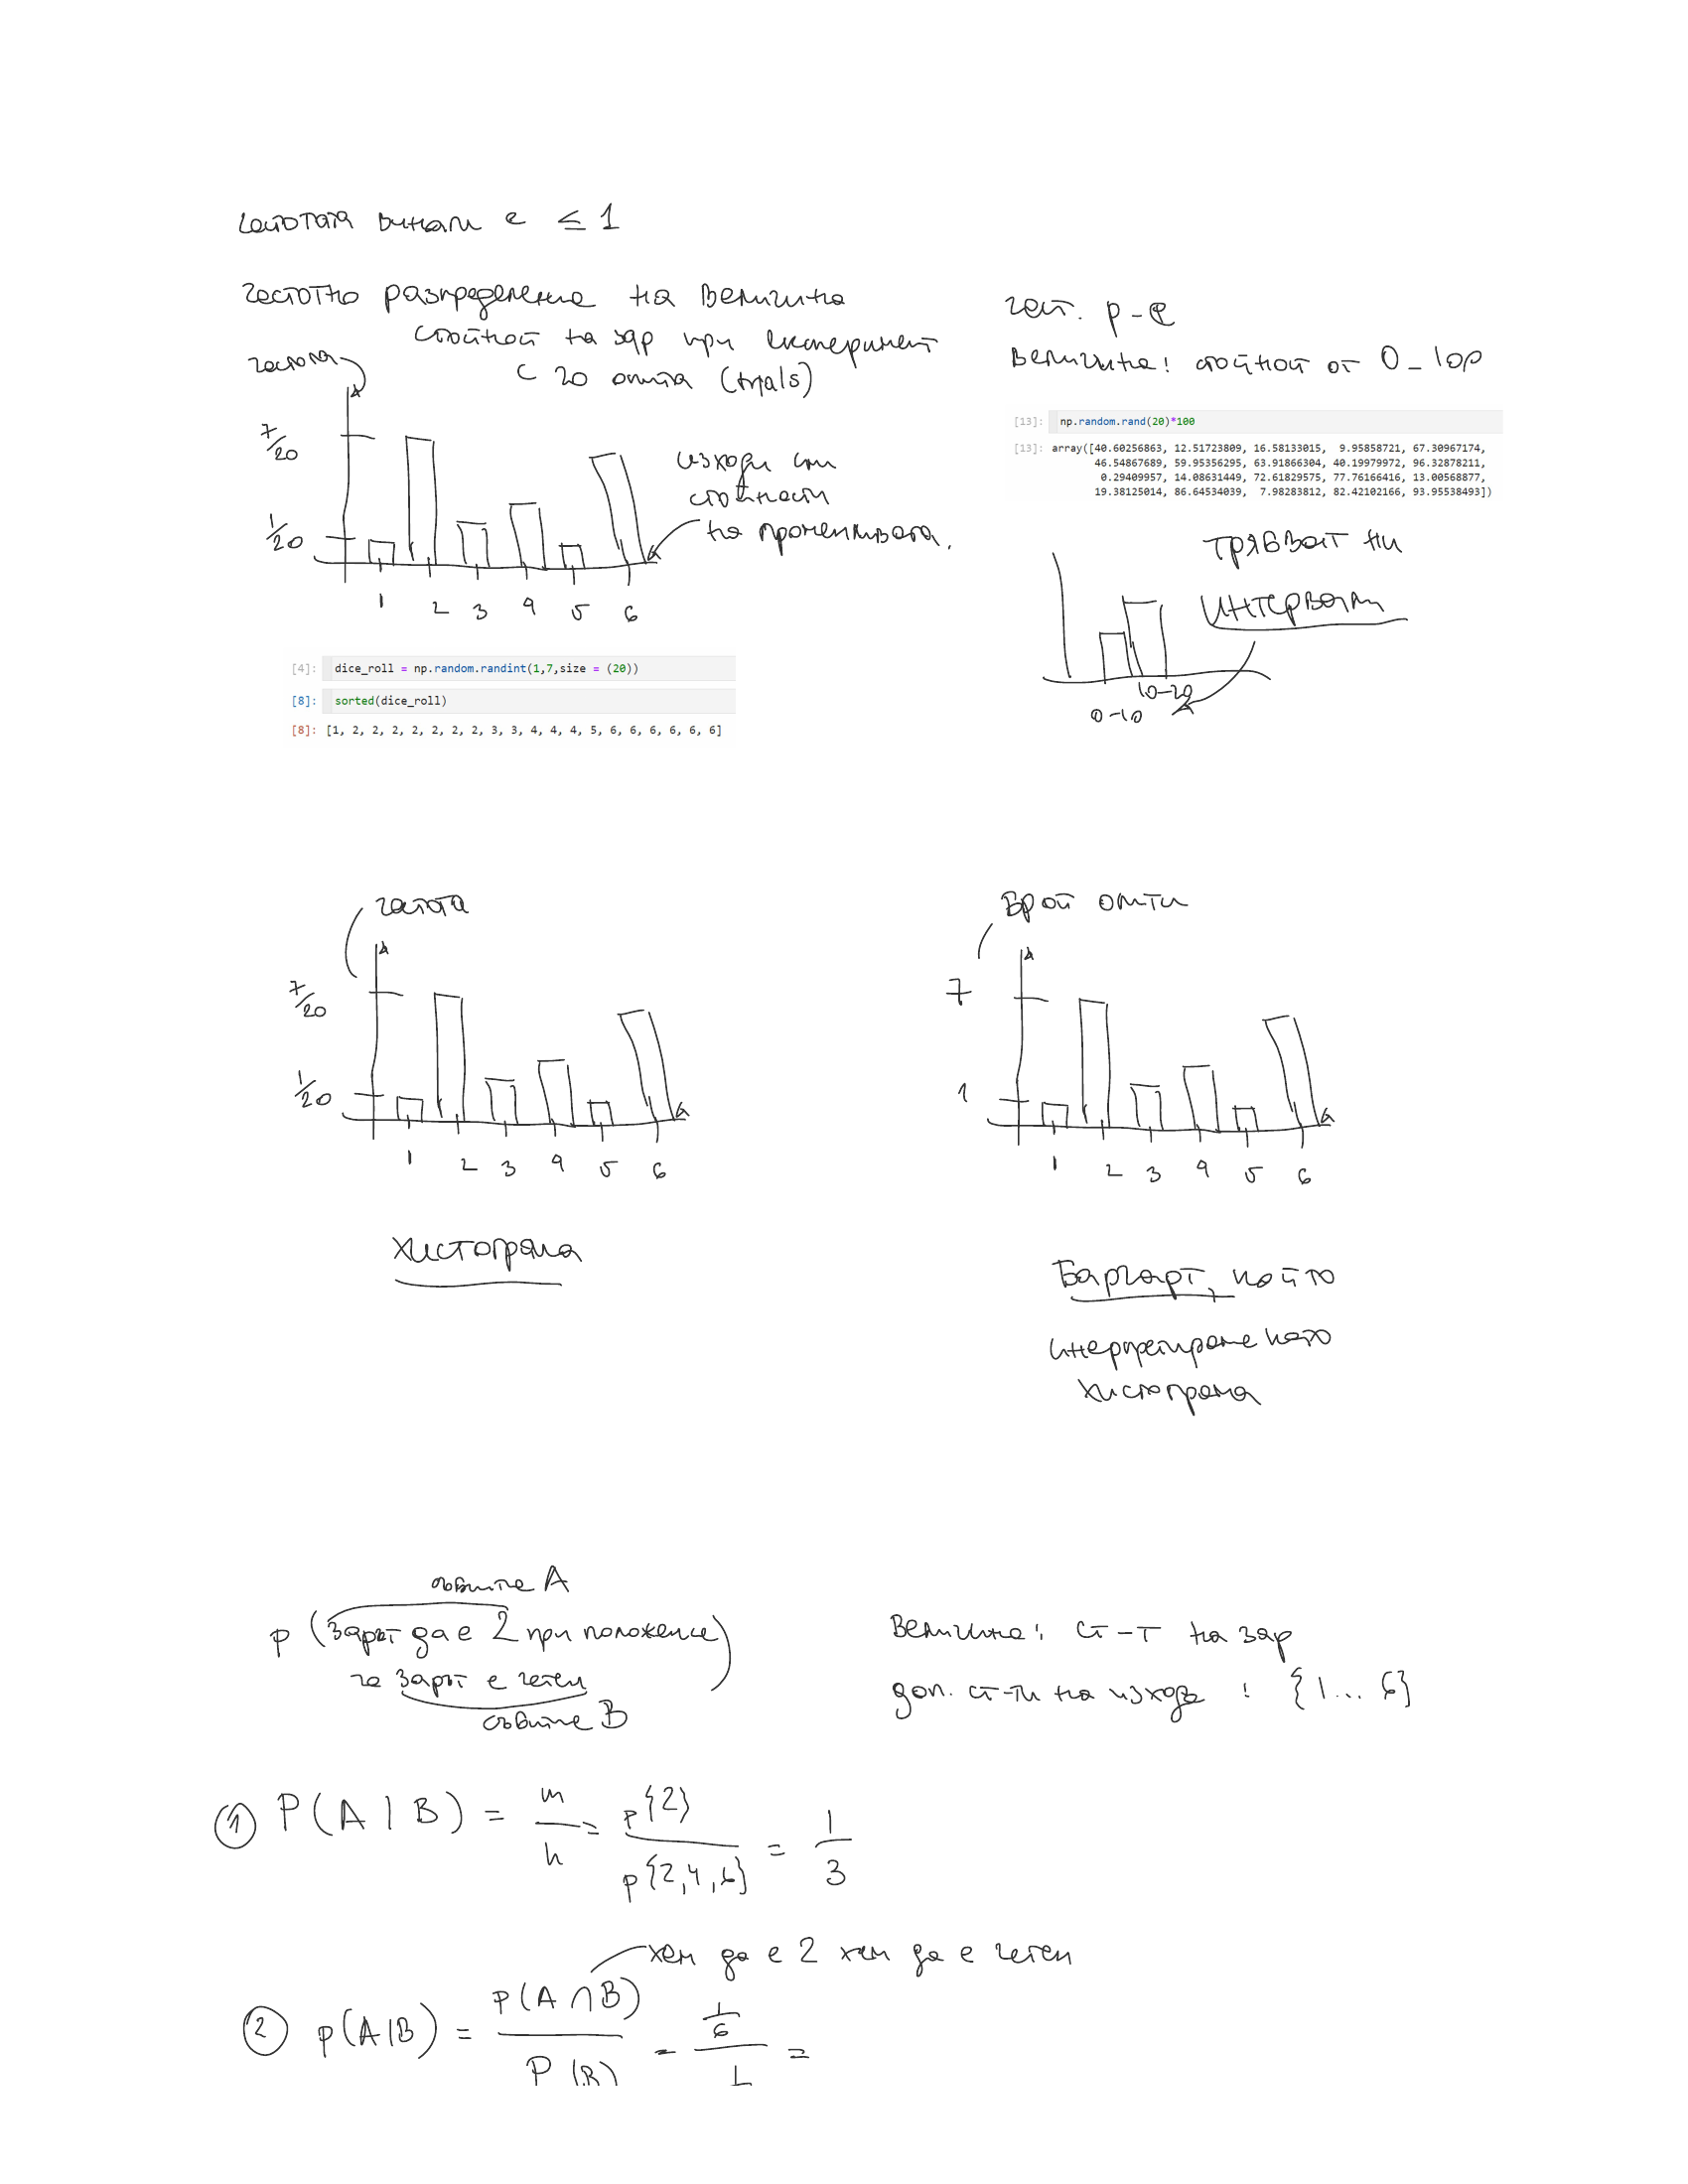 честотата винаги е ≤ 1
честотно разпределение на величина
стойност на зар при експеримент
с 20 опита (trials)
честота
7/20
1/20
1 2 3 4 5 6
изходи или
стойности
на променливата.
[4]: dice_roll = np.random.randint(1,7,size = (20))
[8]: sorted(dice_roll)
[8]: [1, 2, 2, 2, 2, 2, 2, 2, 3, 3, 4, 4, 4, 5, 6, 6, 6, 6, 6, 6]
чест. р-е
величина: стойност от 0 - 100
[13]: np.random.rand(20)*100
[13]: array([40.60256863, 12.51723809, 16.58133015,  9.95858721, 67.30967174,
46.54867689, 59.95356295, 63.91866304, 40.19979972, 96.32878211,
0.29409957, 14.08631449, 72.61829575, 77.76166416, 13.00568877,
19.38125014, 86.64534039,  7.98283812, 82.42102166, 93.95538493])
трябват ни
интервали
10-20
0-10
честота
7/20
1/20
1 2 3 4 5 6
хистограма
Брой опити
7
1
1 2 3 4 5 6
Барчарт, който
интерпретираме като
хистограма
събитие A
p (зарът да е 2 при положение
че зарът е четен)
събитие B
Величина: ст-т на зар
доп. ст-ти на изхода : {1... 6}
① P(A | B) = m/n = p{2}/p{2,4,6} = 1/3
хем да е 2 хем да е четен
② p(A|B) = p(A ∩ B)/P(B) = 1/6 / 1 =